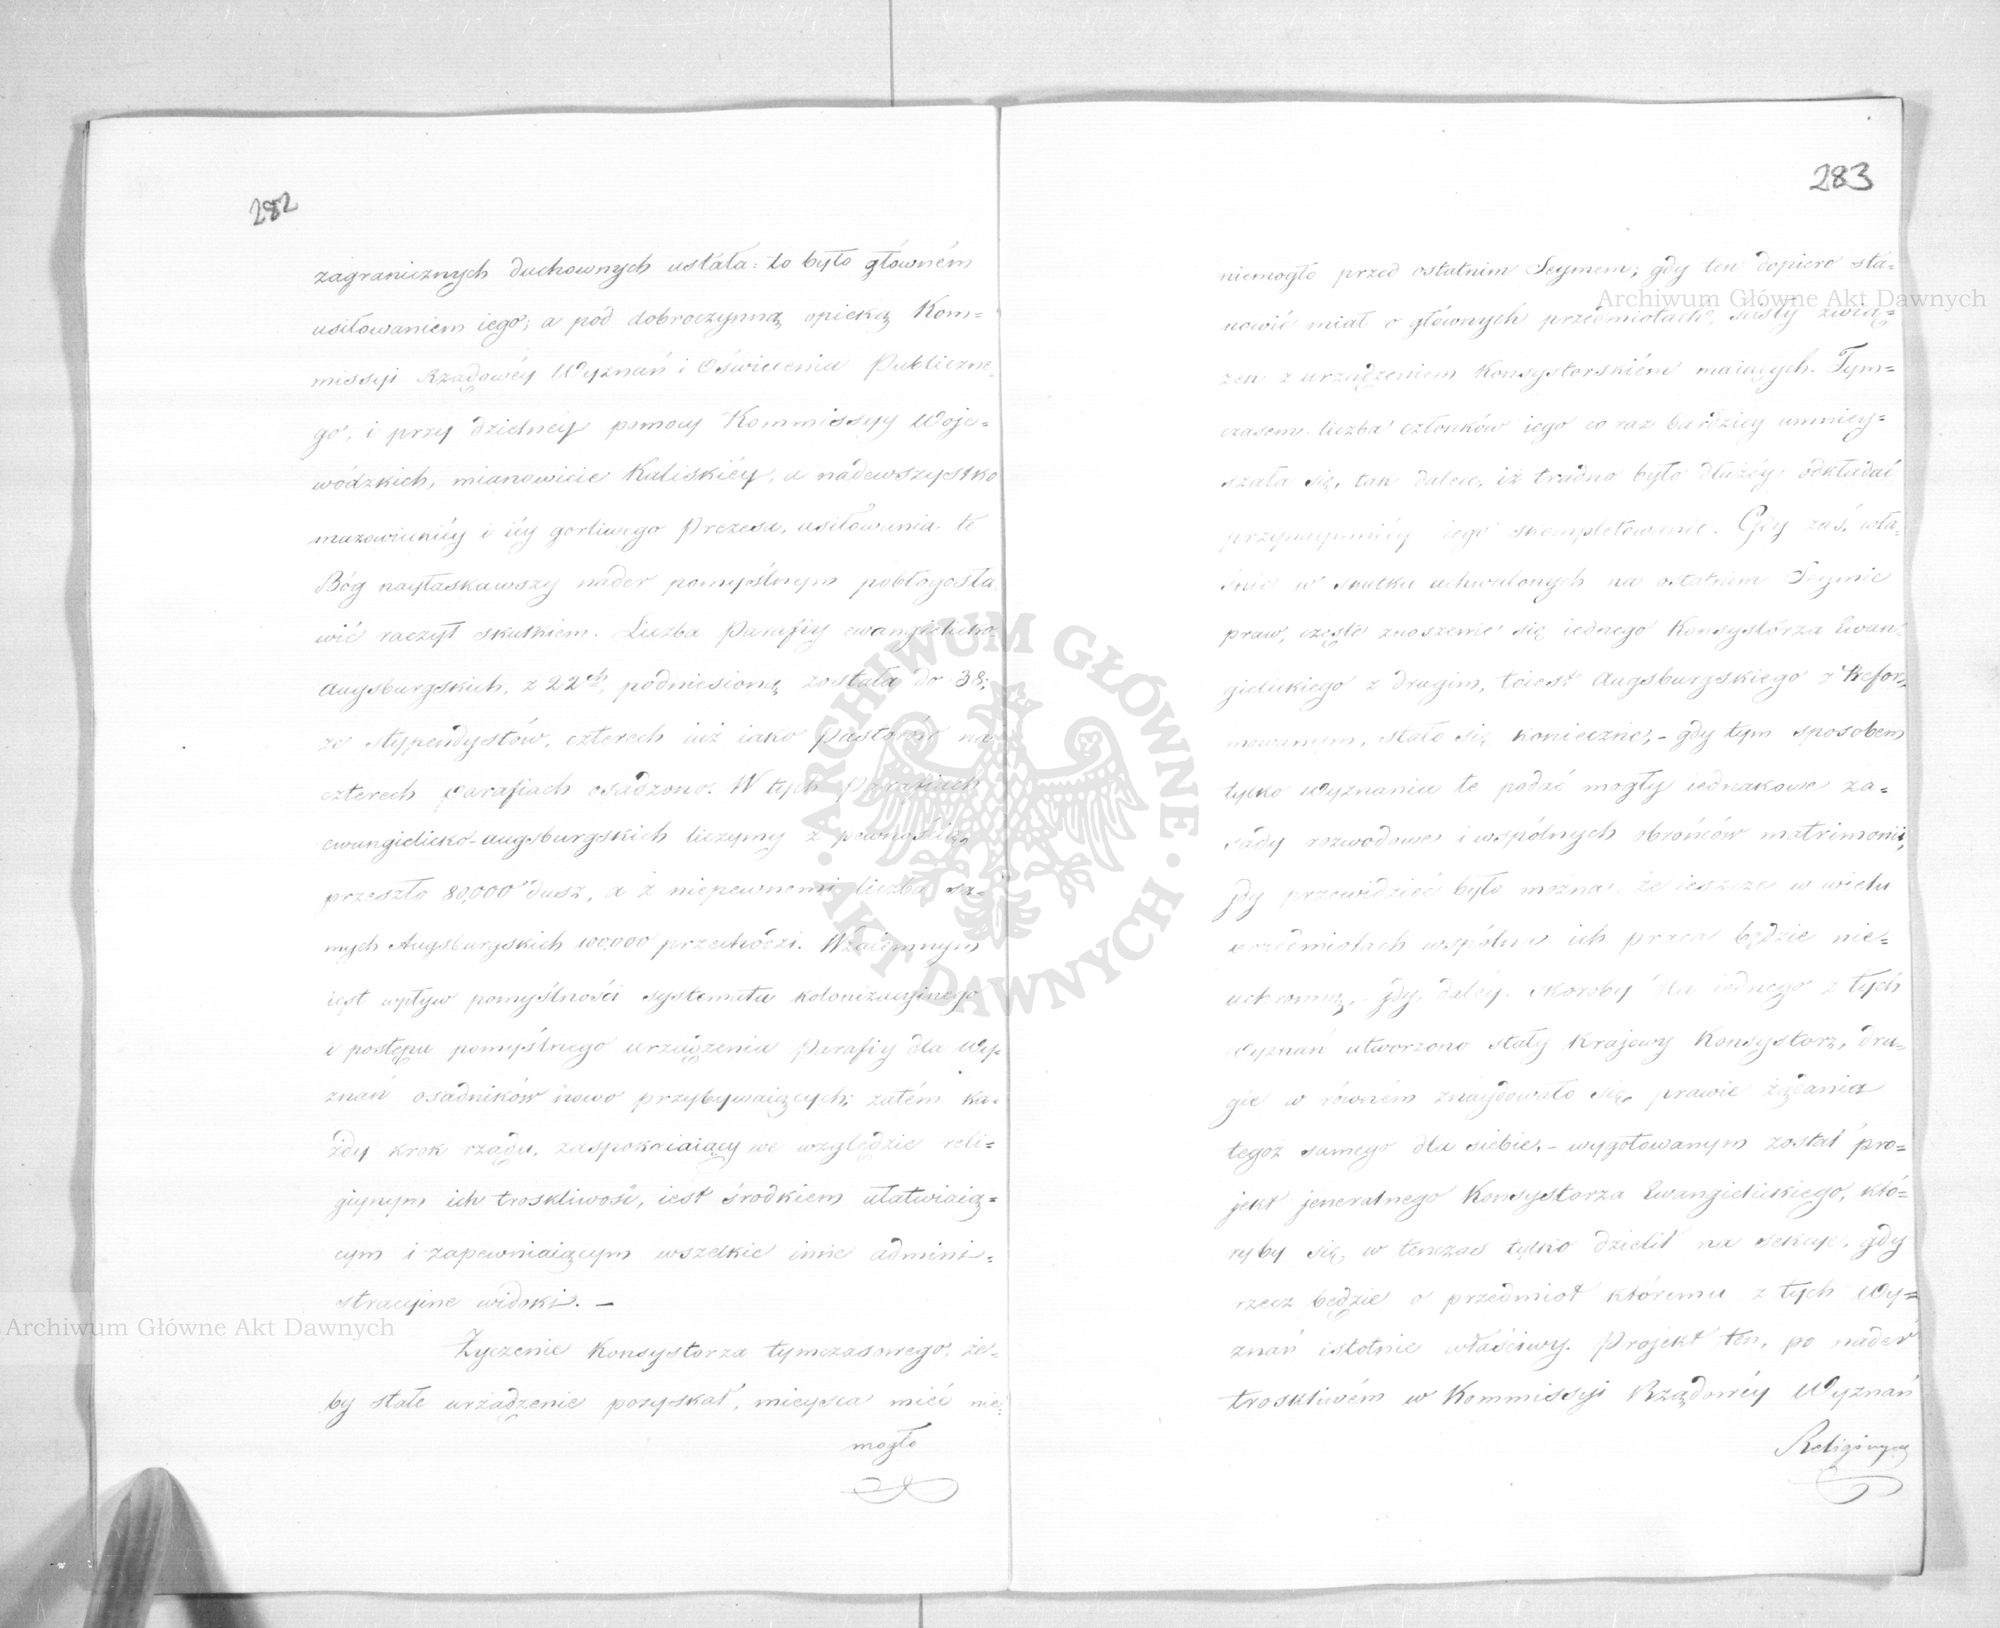 282
zagranicznych duchownych ustała: to było główném
usiłowaniem iego; a pod dobroczynną opieką Kom=
missyi Rządowéy Wyznań i Oświecenia Publiczne-
go, i przy dzielnéy pomocy Kommissyy Woje=
wódzkich, mianowicie Kaliskiéy, a nadewszystko
mazowieckiéy i iéy gorliwego Prezesa, usiłowania te
Bóg nayłaskawszy nader pomyślnym pobłogosła-
wić raczył skutkiem. Liczba Parafiy ewangielicko-
augsburgskich, z 22ch, podniesioną została do 38;
ze stypendystów, czterech iuż iako Pastorów na
czterech parafiach osadzono. W tych Parafiach
ewangielicko-augsburgskich liczymy z pewnością,
przeszło 80,000 dusz, a z niepewnemi liczba sa=
mych Augsburgskich 100,000 przechodzi. Wzaiemnym
iest wpływ pomyślności systematu kolonizacyinego
i postępu pomyślnego urządzenia Parafiy dla Wy-
znań osadników nowo przybywaiących; zatém ka-
żdy krok rządu, zaspokaiaiący we względzie reli=
giynym ich troskliwość, iest środkiem ułatwiaią=
cym i zapewniaiącym wszelkie inne admini=
stracyine widoki. —
Życzenie Konsystorza tymczasowego, że=
by stałe urządzenie pozyskał, mieysca mieć nie=
mogło
283
niemogło przed ostatnim Seymem; gdy ten dopiero sta=
nowić miał o głównych przedmiotach, ścisły zwią=
zek z urządzeniem Konsystorskiém maiących. Tym=
czasem liczba członków iego co raz bardziey umniey=
szała się, tak dalece, iż trudno było dłużéy odkładać
przynaymniéy iego skompletowanie. Gdy zaś, wła-
śnie w skutku uchwalonych na ostatnim Seymie
praw, częste znoszenie się iednego Konsystorza Ewan=
gielickiego z drugim, toiest Augsburgskiego z Refor=
mowanym, stało się konieczne,- gdy tym sposobem
tylko wyznania te podać mogły iednakowe za=
sady rozwodowe i wspólnych obrońców matrimonii,
gdy przewidzieć było można, że ieszcze w wielu
przedmiotach wspólna ich praca będzie nie=
uchronną,- gdy, daléy, skoroby dla iednego z tych
Wyznań utworzono stały Krajowy Konsystorz, dru=
gie w równém znaydowało się prawie żądania
tegoż samego dla siebie,- wygotowanym został pro=
jekt jeneralnego Konsystorza Ewangielickiego, któ=
ryby się w tenczas tylko dzielił na sekcye, gdy
rzecz będzie o przedmiot któremu z tych Wy=
znań istotnie właściwy. Projekt ten, po nader
troskliwém w Kommissyi Rządowéy Wyznań
Religiynych
Archiwum Główne Akt Dawnych
Archiwum Główne Akt Dawnych
ARCHIWUM GŁÓWNE · AKT DAWNYCH ·